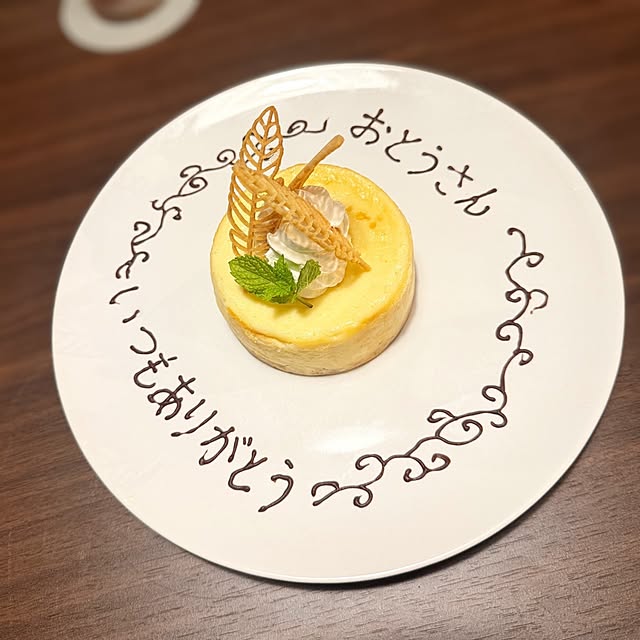 おとうさん
いつもありがとう